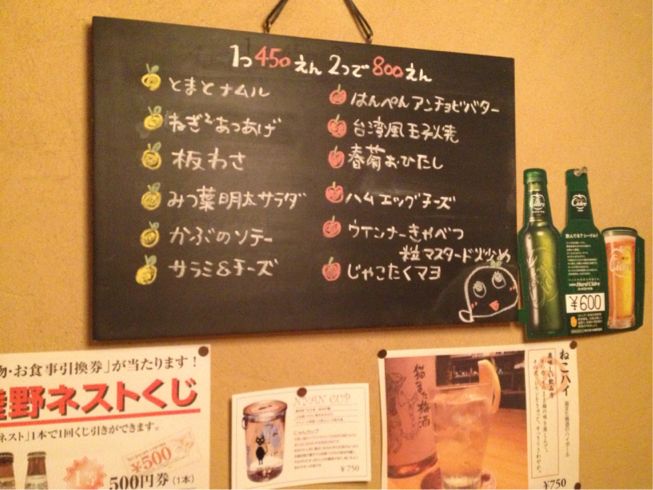 1つ450えん 2つで800えん
とまとナムル
ねぎ2あつあげ
板わさ
みつ葉明太サラダ
かぶのソテー
サラミ&チーズ
はんぺんアンチョビバター
台湾風玉子焼
春菊おひたし
ハムエッグチーズ
ウインナーきゃべつ
粒マスタード炒め
じゃこたくマヨ
Cidre
Hard Cidre
¥600
物・お食事引換券」が当たります!
野ネストくじ
ネスト」1本で1回くじ引きができます。
¥500
1等
500円券(1本)
CUP
¥750
ねこハイ
猫 梅酒
¥750